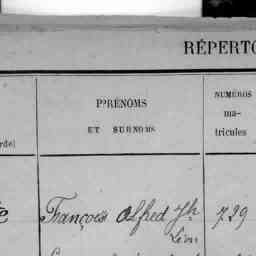 RÉPERTO
PRÉNOMS
ET SURNOMS
NUMÉROS
ma-
tricules
rdel
François Alfred Jh 729
Léon